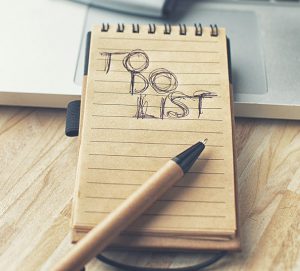 TO
DO
LIST